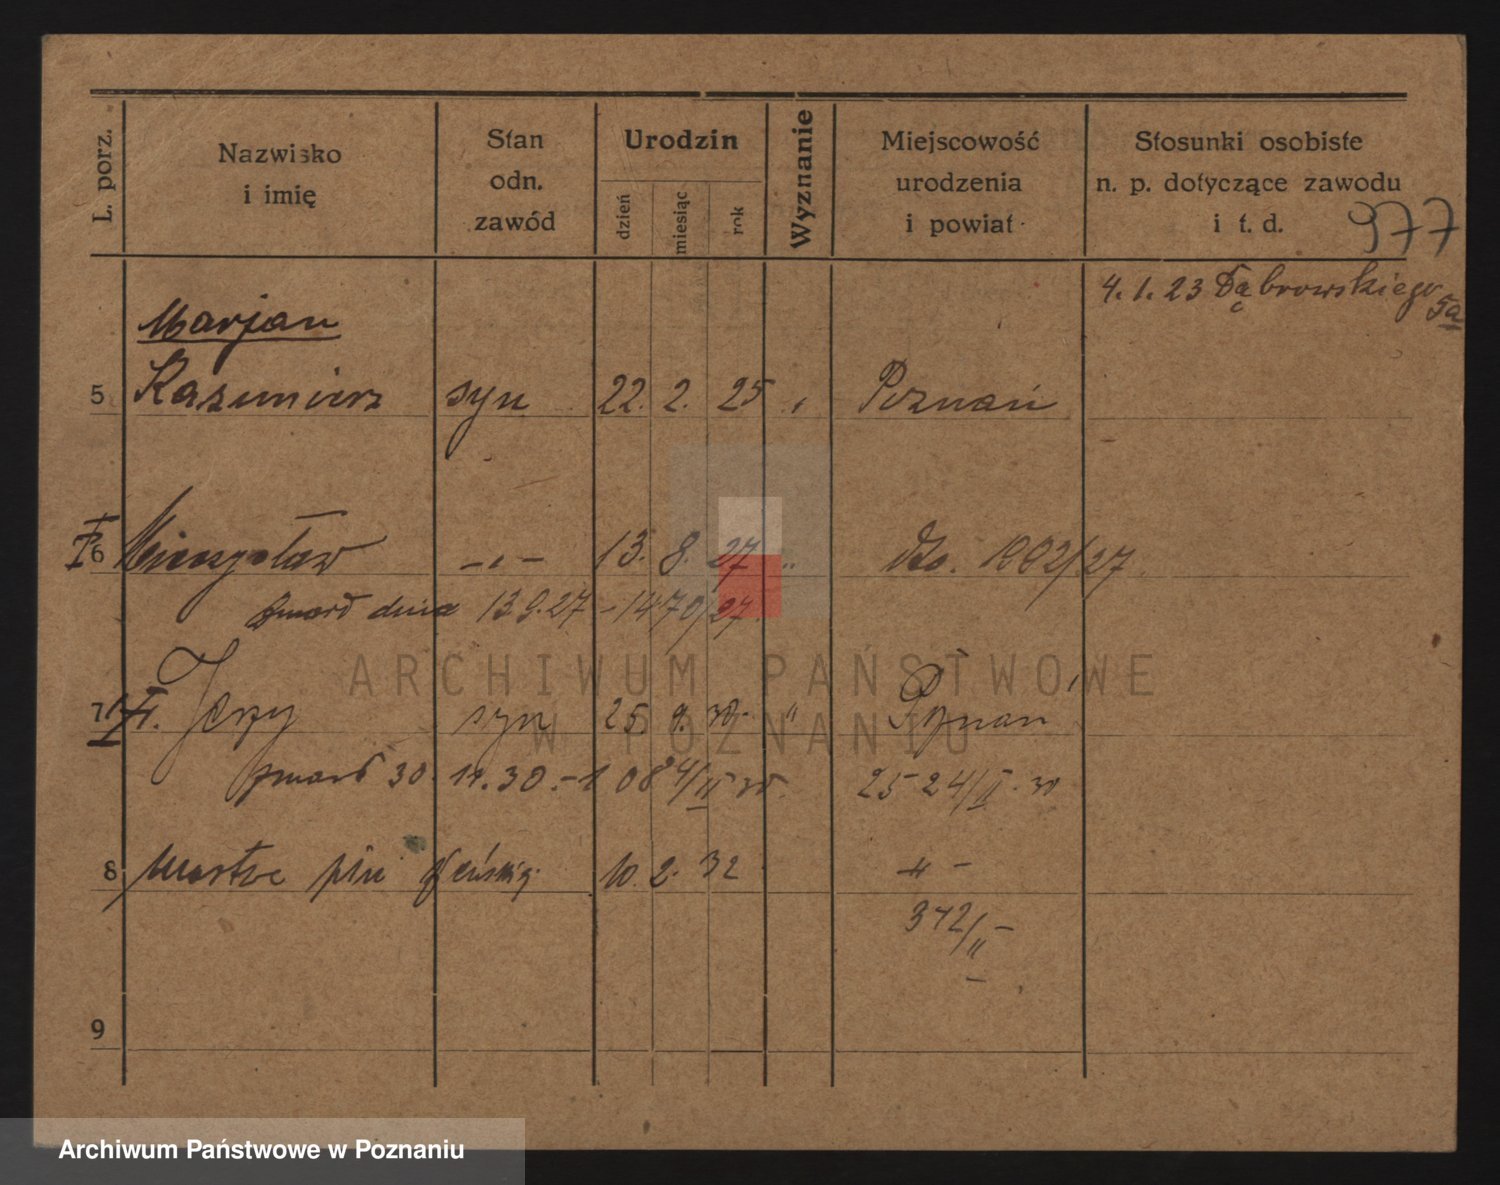 L. porz.
Nazwisko
i imię
Stan
odn.
zawód
Urodzin
dzień
miesiąc
rok
Wyznanie
Miejscowość
urodzenia
i powiat
Stosunki osobiste
n. p. dotyczące zawodu
i t. d.
977
4. 1. 23 Dąbrowskiego 5a
Marjan
5 Kazimierz syn 22. 2. 25 Poznań
6 Mieczysław -„- 13. 8. 27 „ dto. 1882/27
zmarł dnia 13 9. 27 - 1470/27.
7 Jerzy syn 25 9. 30. „ Poznań
zmarł 30. 11. 30. - 1084/II 30. 2524/II. 30
8 martwe płci żeńskiej 10. 2. 32 -„-
372/II -
9
ARCHIWUM PAŃSTWOWE
W POZNANIU
Archiwum Państwowe w Poznaniu